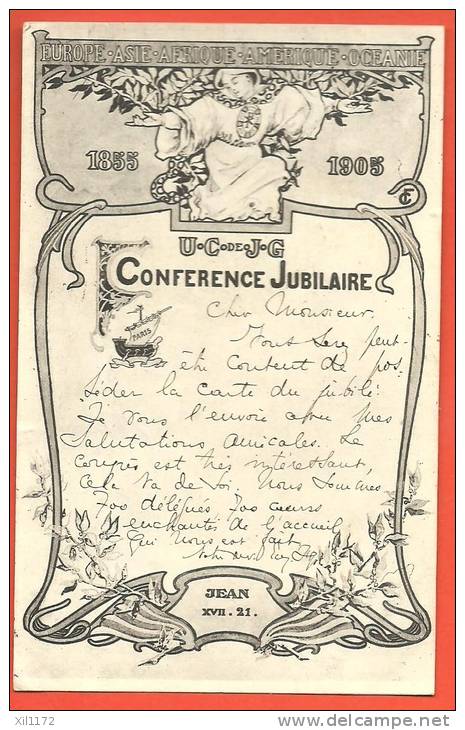 EUROPE·ASIE·AFRIQUE·AMERIQUE·OCEANIE
1855 1905
U·C·DE·J·G
CONFERENCE JUBILAIRE
PARIS
Cher Monsieur.
Vous serez peut-
être content de pos-
séder la carte du jubilé.
Je vous l'envoie avec mes
salutations amicales. Le
congrès est très intéressant,
cela va de soi. Nous sommes
700 délégués 700 cœurs
enchantés de l'accueil
qui nous est fait
JEAN
XVII. 21.
xil1172
© delcampe.net